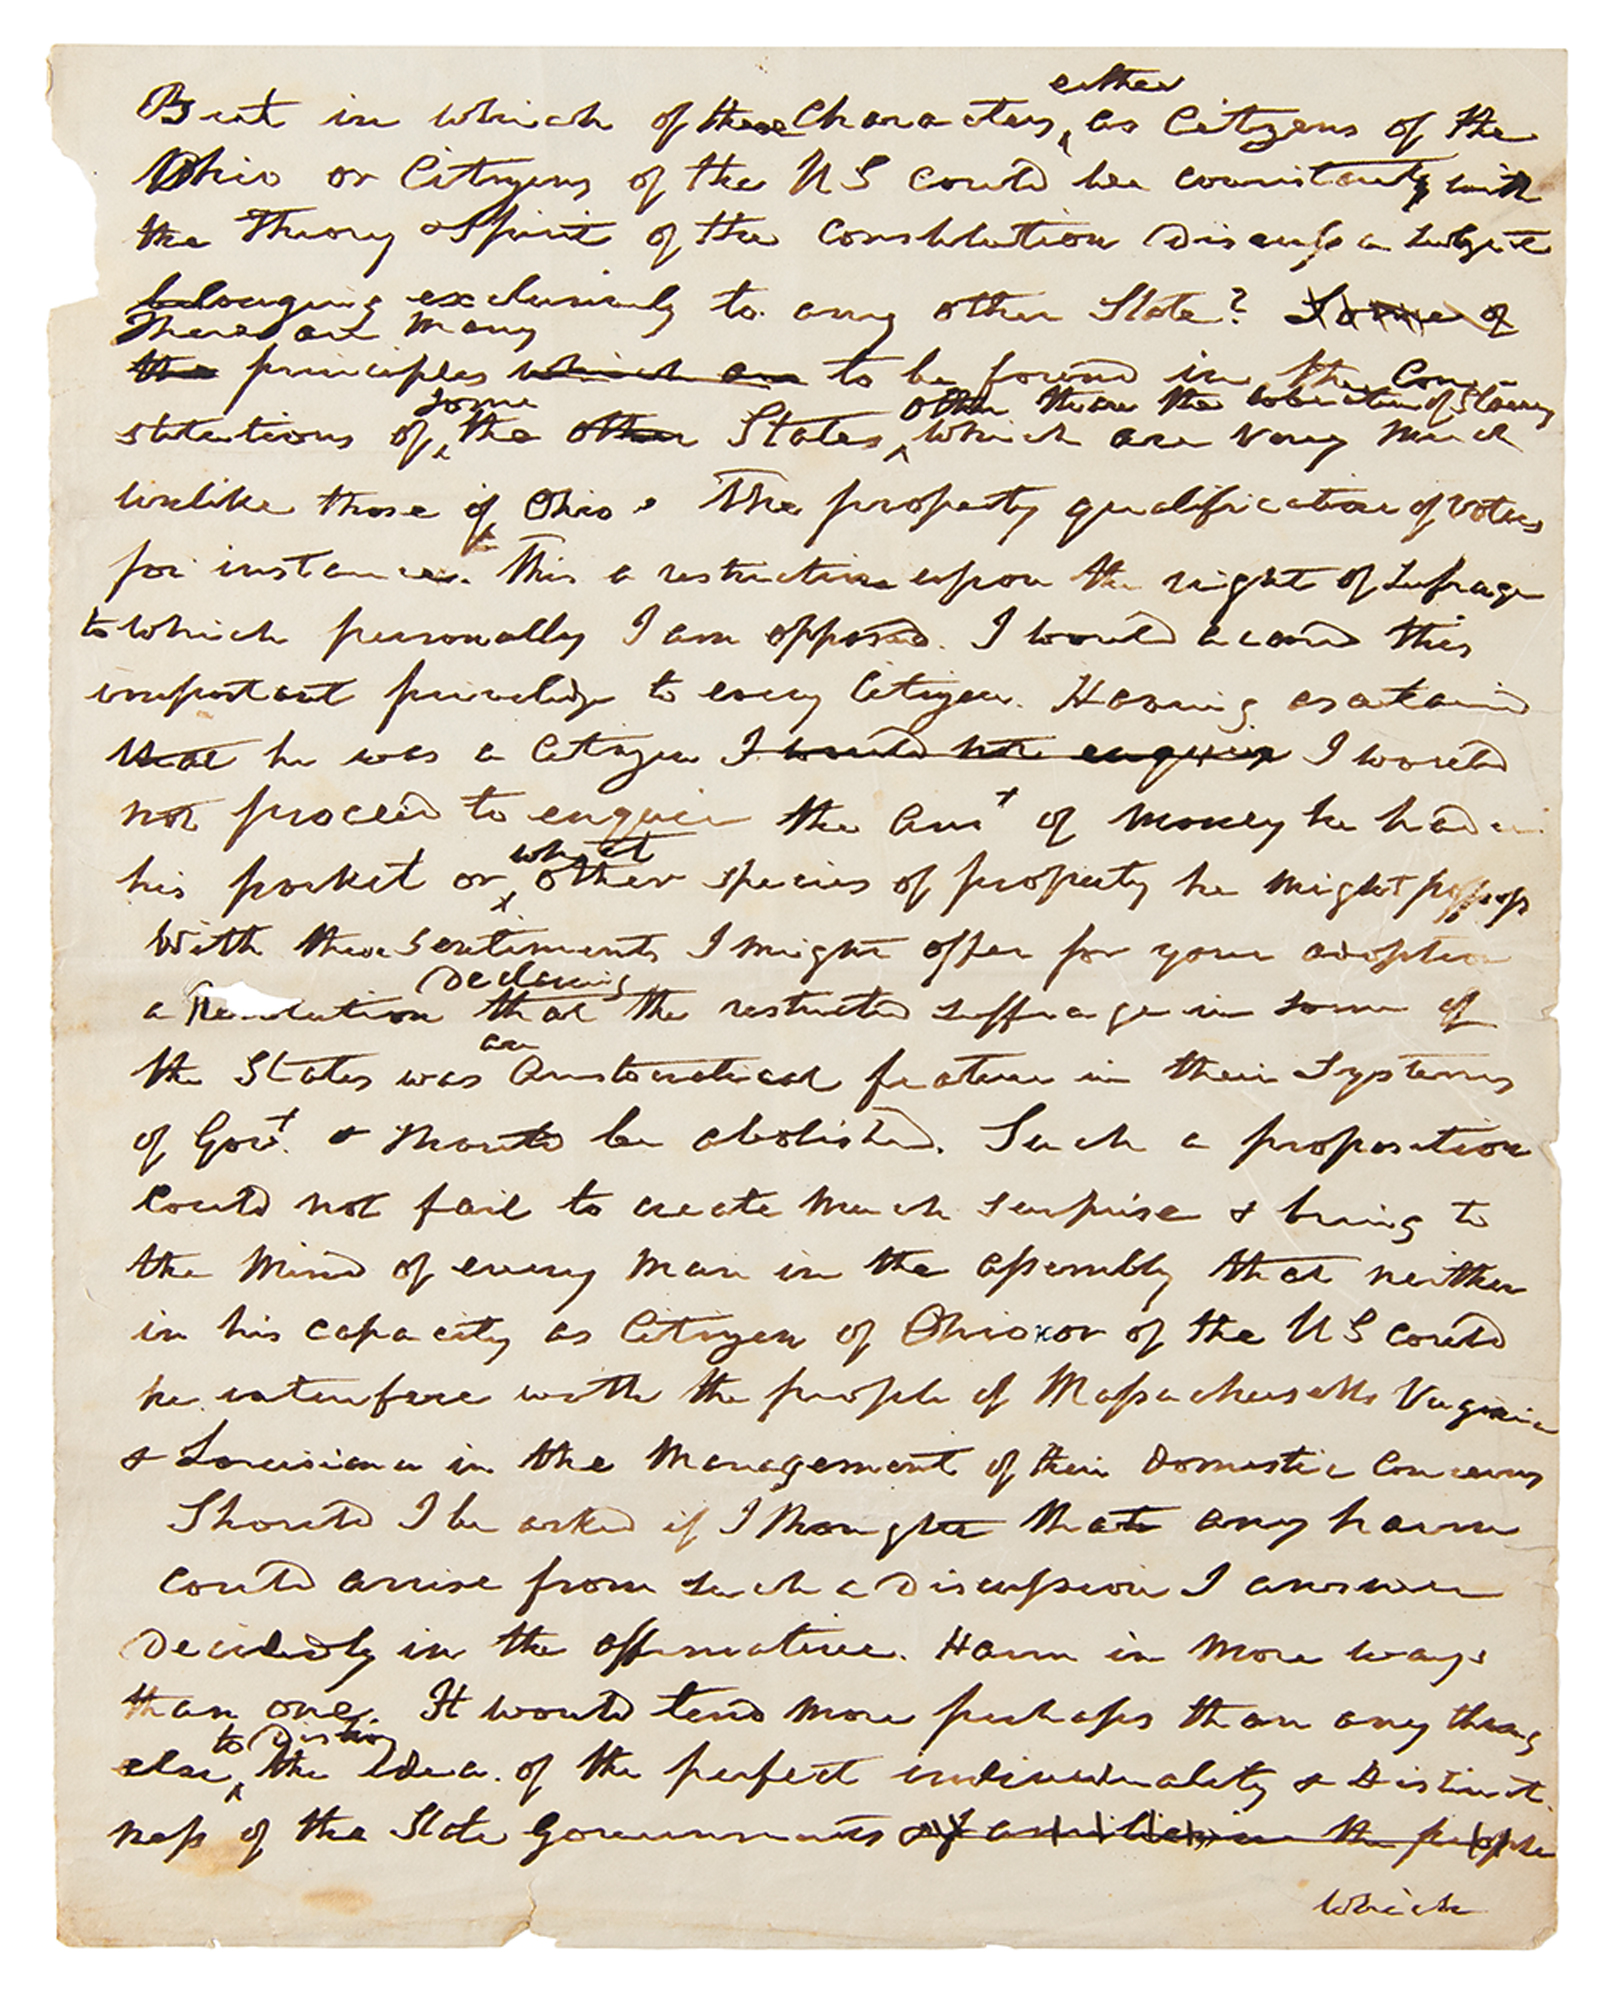 either
But in which of these Characters, as Citizens of the
Ohio or Citizens of the US could he consistently with
the Theory & Spirit of the Constitution Discuss a subject
belonging exclusively to any other State? Some of
There are many
the principles which are to be found in the Con-
some other than the toleration of Slavery
stitutions of the other States, which are very much
unlike those of Ohio. The property qualification of voters
for instance. This a restriction upon the right of Sufrage
to which personally I am opposed. I would accord this
important priviledge to every Citizen. Having ascertained
that he was a Citizen I would not enquire I would
not proceed to enquire the Amt of money he had in
what
his pocket or other species of property he might possess
With these Sentiments I might offer for your adoption
Declaring
a Resolution that the restricted suffrage in some of
an
the States was Aristocratical feature in their Systems
of Govt. & should be abolished. Such a proposition
could not fail to create much surprise & bring to
the mind of every man in the assembly that neither
in his capacity as Citizen of Ohio or of the US could
he interfere with the people of Massachusetts Virginia
& Louisiana in the management of their Domestic Concerns
Should I be asked if I thought that any harm
could arrise from such a Discussion I answer
Decidedly in the affirmative. Harm in more ways
than one. It would tend more perhaps than any thing
to Distroy
else, the Idea of the perfect individuality & Distinct
ness of the State Governments & familiarise the people
which